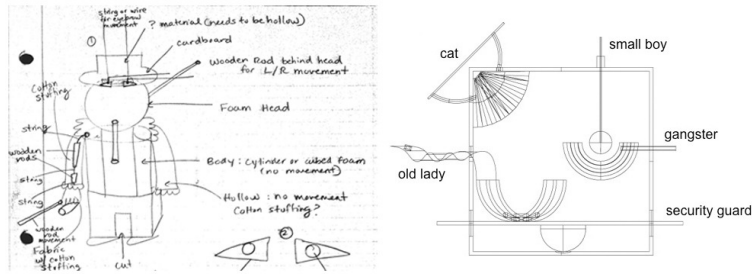 string or wire
for eyebrow
movement
①
? material (needs to be hollow)
cardboard
wooden Rod behind head
for L/R movement
Cotton
stuffing
Foam Head
string
wooden
rods
Body: cylinder or cubed foam
(no movement)
string
string
Hollow: no movement
Cotton stuffing?
wooden
rod
movement
Fabric
w/ cotton
stuffing
cut
②
cat
small boy
gangster
old lady
security guard